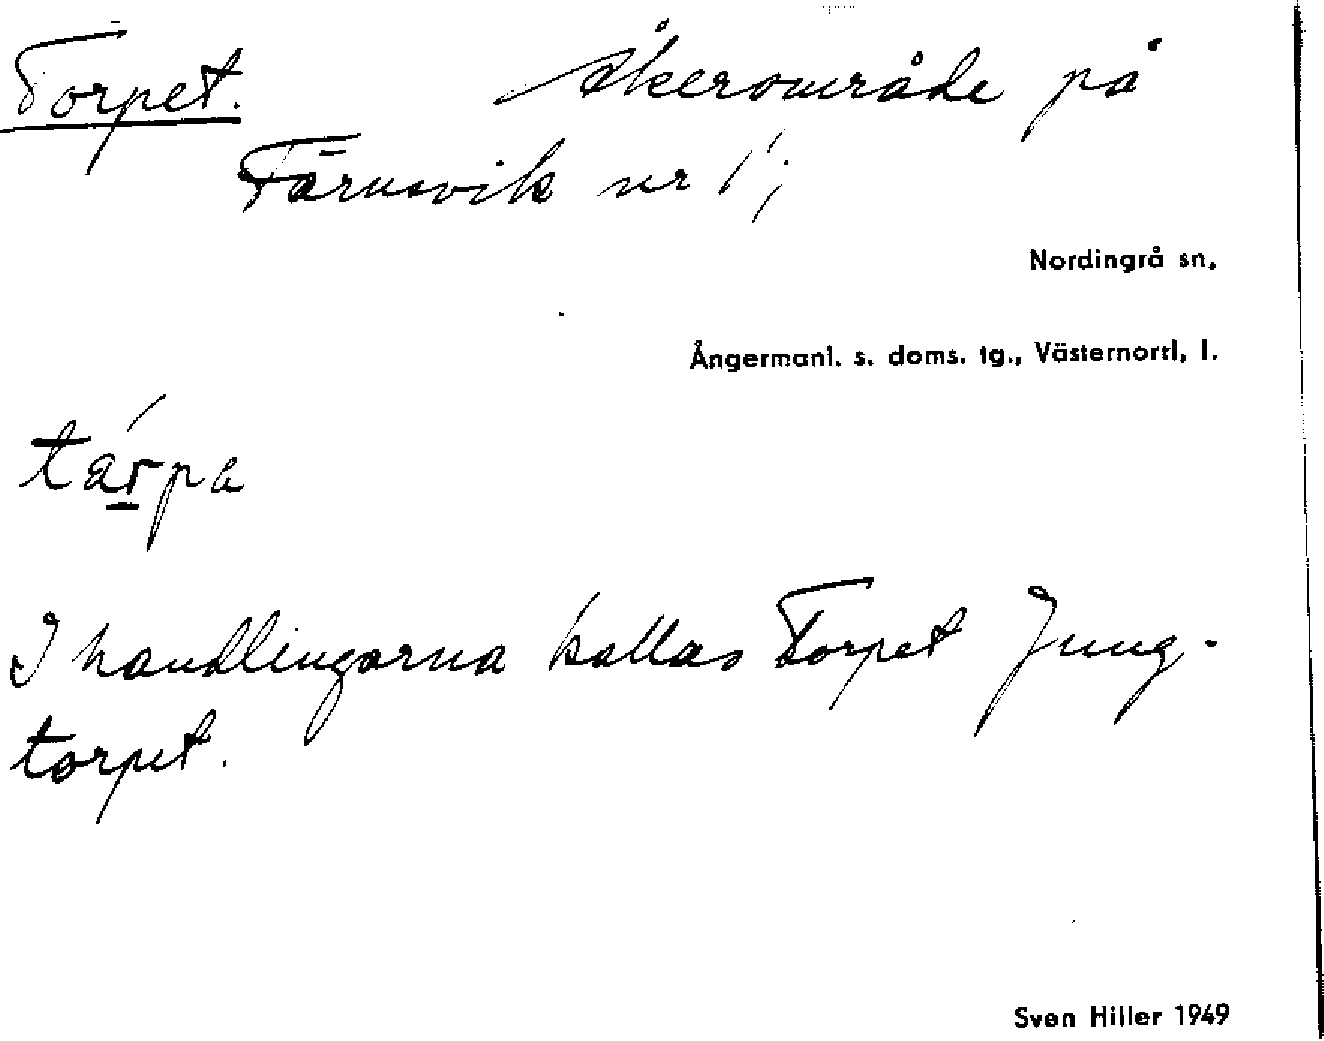 Torpet. åkerområde på
Färnsvik nr 1;
Nordingrå sn,
Ångermanl. s. doms. tg., Västernorrl, l.
tárpa
I handlingarna kallas Torpet Jung-
torpet.
Sven Hiller 1949